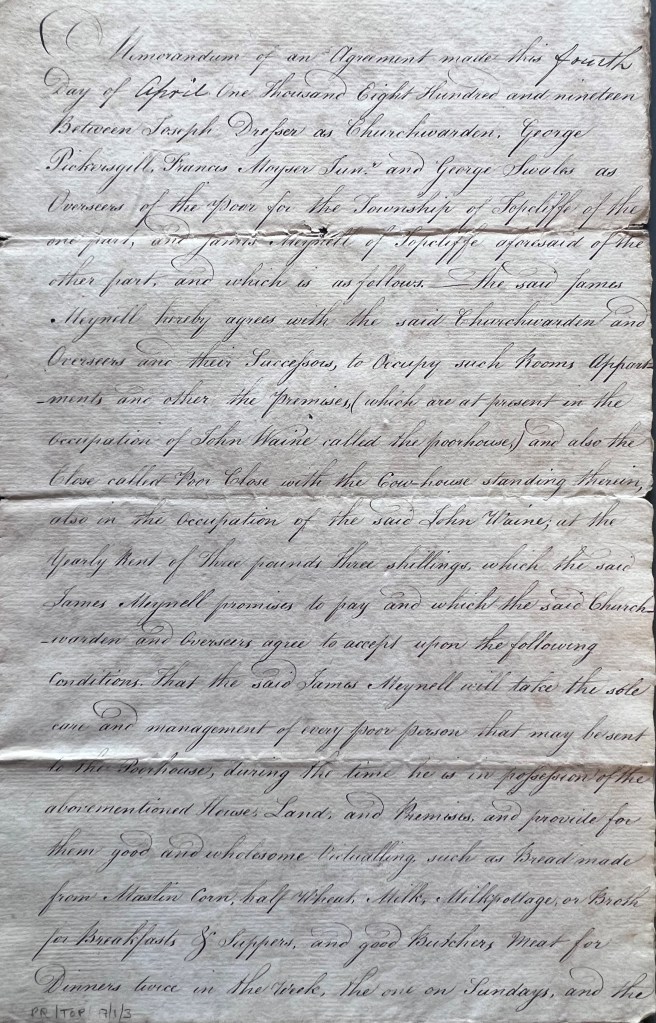 Memorandum of an Agreement made this fourth
Day of April One Thousand Eight Hundred and nineteen
Between Joseph Dresser as Churchwarden, George
Pickersgill, Francis Moyser Junr. and George Swales as
Overseers of the Poor for the Township of Topcliffe of the
one part, and James Meynell of Topcliffe aforesaid of the
other part, and which is as follows. — The said James
Meynell hereby agrees with the said Churchwarden and
Overseers and their Successors, to Occupy such Rooms Appart-
-ments and other the Premises, (which are at present in the
Occupation of John Waine called the poorhouse,) and also the
Close called Poor Close with the Cow-house standing therein,
also in the Occupation of the said John Waine; at the
Yearly Rent of Three pounds three shillings, which the said
James Meynell promises to pay and which the said Church-
-warden and Overseers agree to accept upon the following
Conditions. That the said James Meynell will take the sole
care and management of every poor person that may be sent
to the Poorhouse, during the time he is in possession of the
abovementioned House, Land, and Premises, and provide for
them good and wholesome Victualling, such as Bread made
from Maslin Corn, half Wheat, Milk, Milkpottage, or Broth
for Breakfasts & Suppers, and good Butchers Meat for
Dinners twice in the Week, the one on Sundays, and the
PR/TOP/7/1/3